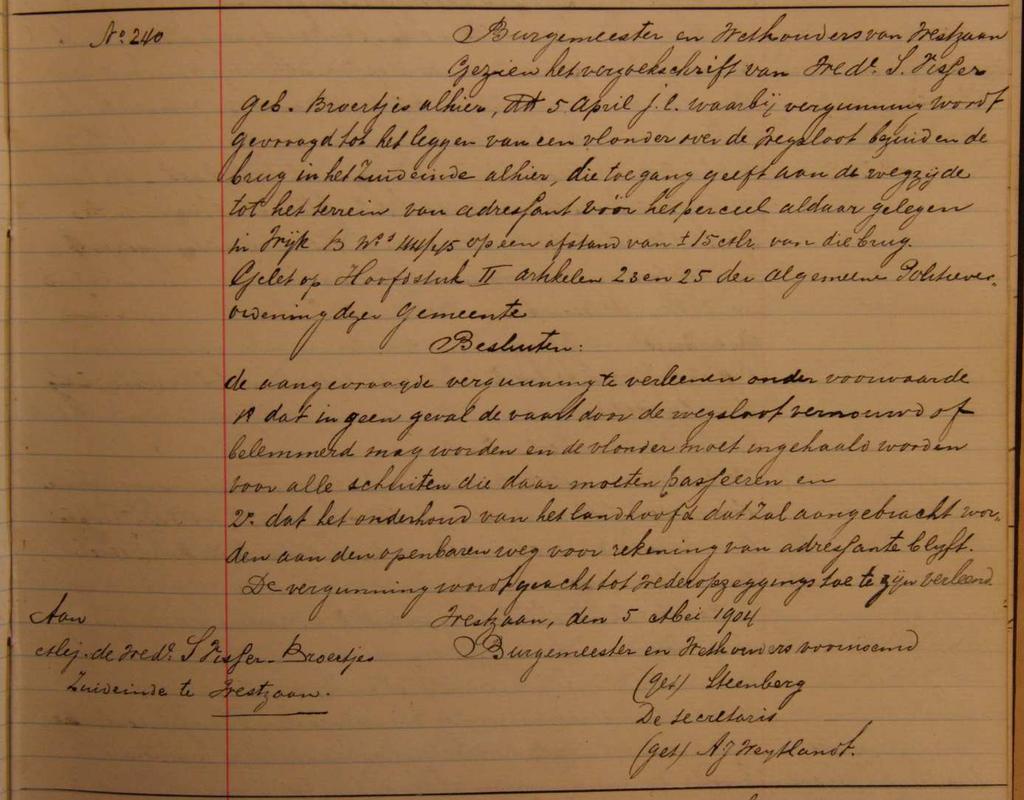 No. 240
Burgemeester en Wethouders van Westzaan
Gezien het verzoekschrift van Wedr. S. Visser
geb. Broertjes alhier, dd 5 April j.l. waarbij vergunning wordt
gevraagd tot het leggen van een vlonder over de Wegsloot bezuiden de
brug in het Zuideinde alhier, die toegang geeft aan de wegzijde
tot het terrein van adressant vóór het perceel aldaar gelegen
in Wijk B Nos 44/45 op een afstand van ± 15 Mtr. van die brug.
Gelet op Hoofdstuk II artikelen 23 en 25 der Algemeene Politiever-
ordening dezer Gemeente
Besluiten:
de aangevraagde vergunning te verleenen onder voorwaarde
1o dat in geen geval de vaart door de wegsloot vernouwd of
belemmerd mag worden en de vlonder moet ingehaald worden
voor alle schuiten die daar moeten passeeren en
2o. dat het onderhoud van het landhoofd dat zal aangebracht wor-
den aan den openbaren weg voor rekening van adressante blijft.
De vergunning wordt geacht tot wederopzeggings toe te zijn verleend
Westzaan, den 5 Mei 1904
Aan
Burgemeester en Wethouders voornoemd
Mej. de Wedr. S Visser-Broertjes
(get) Steenberg
Zuideinde te Westzaan.
De secretaris
(get) AJ Weytlandt.